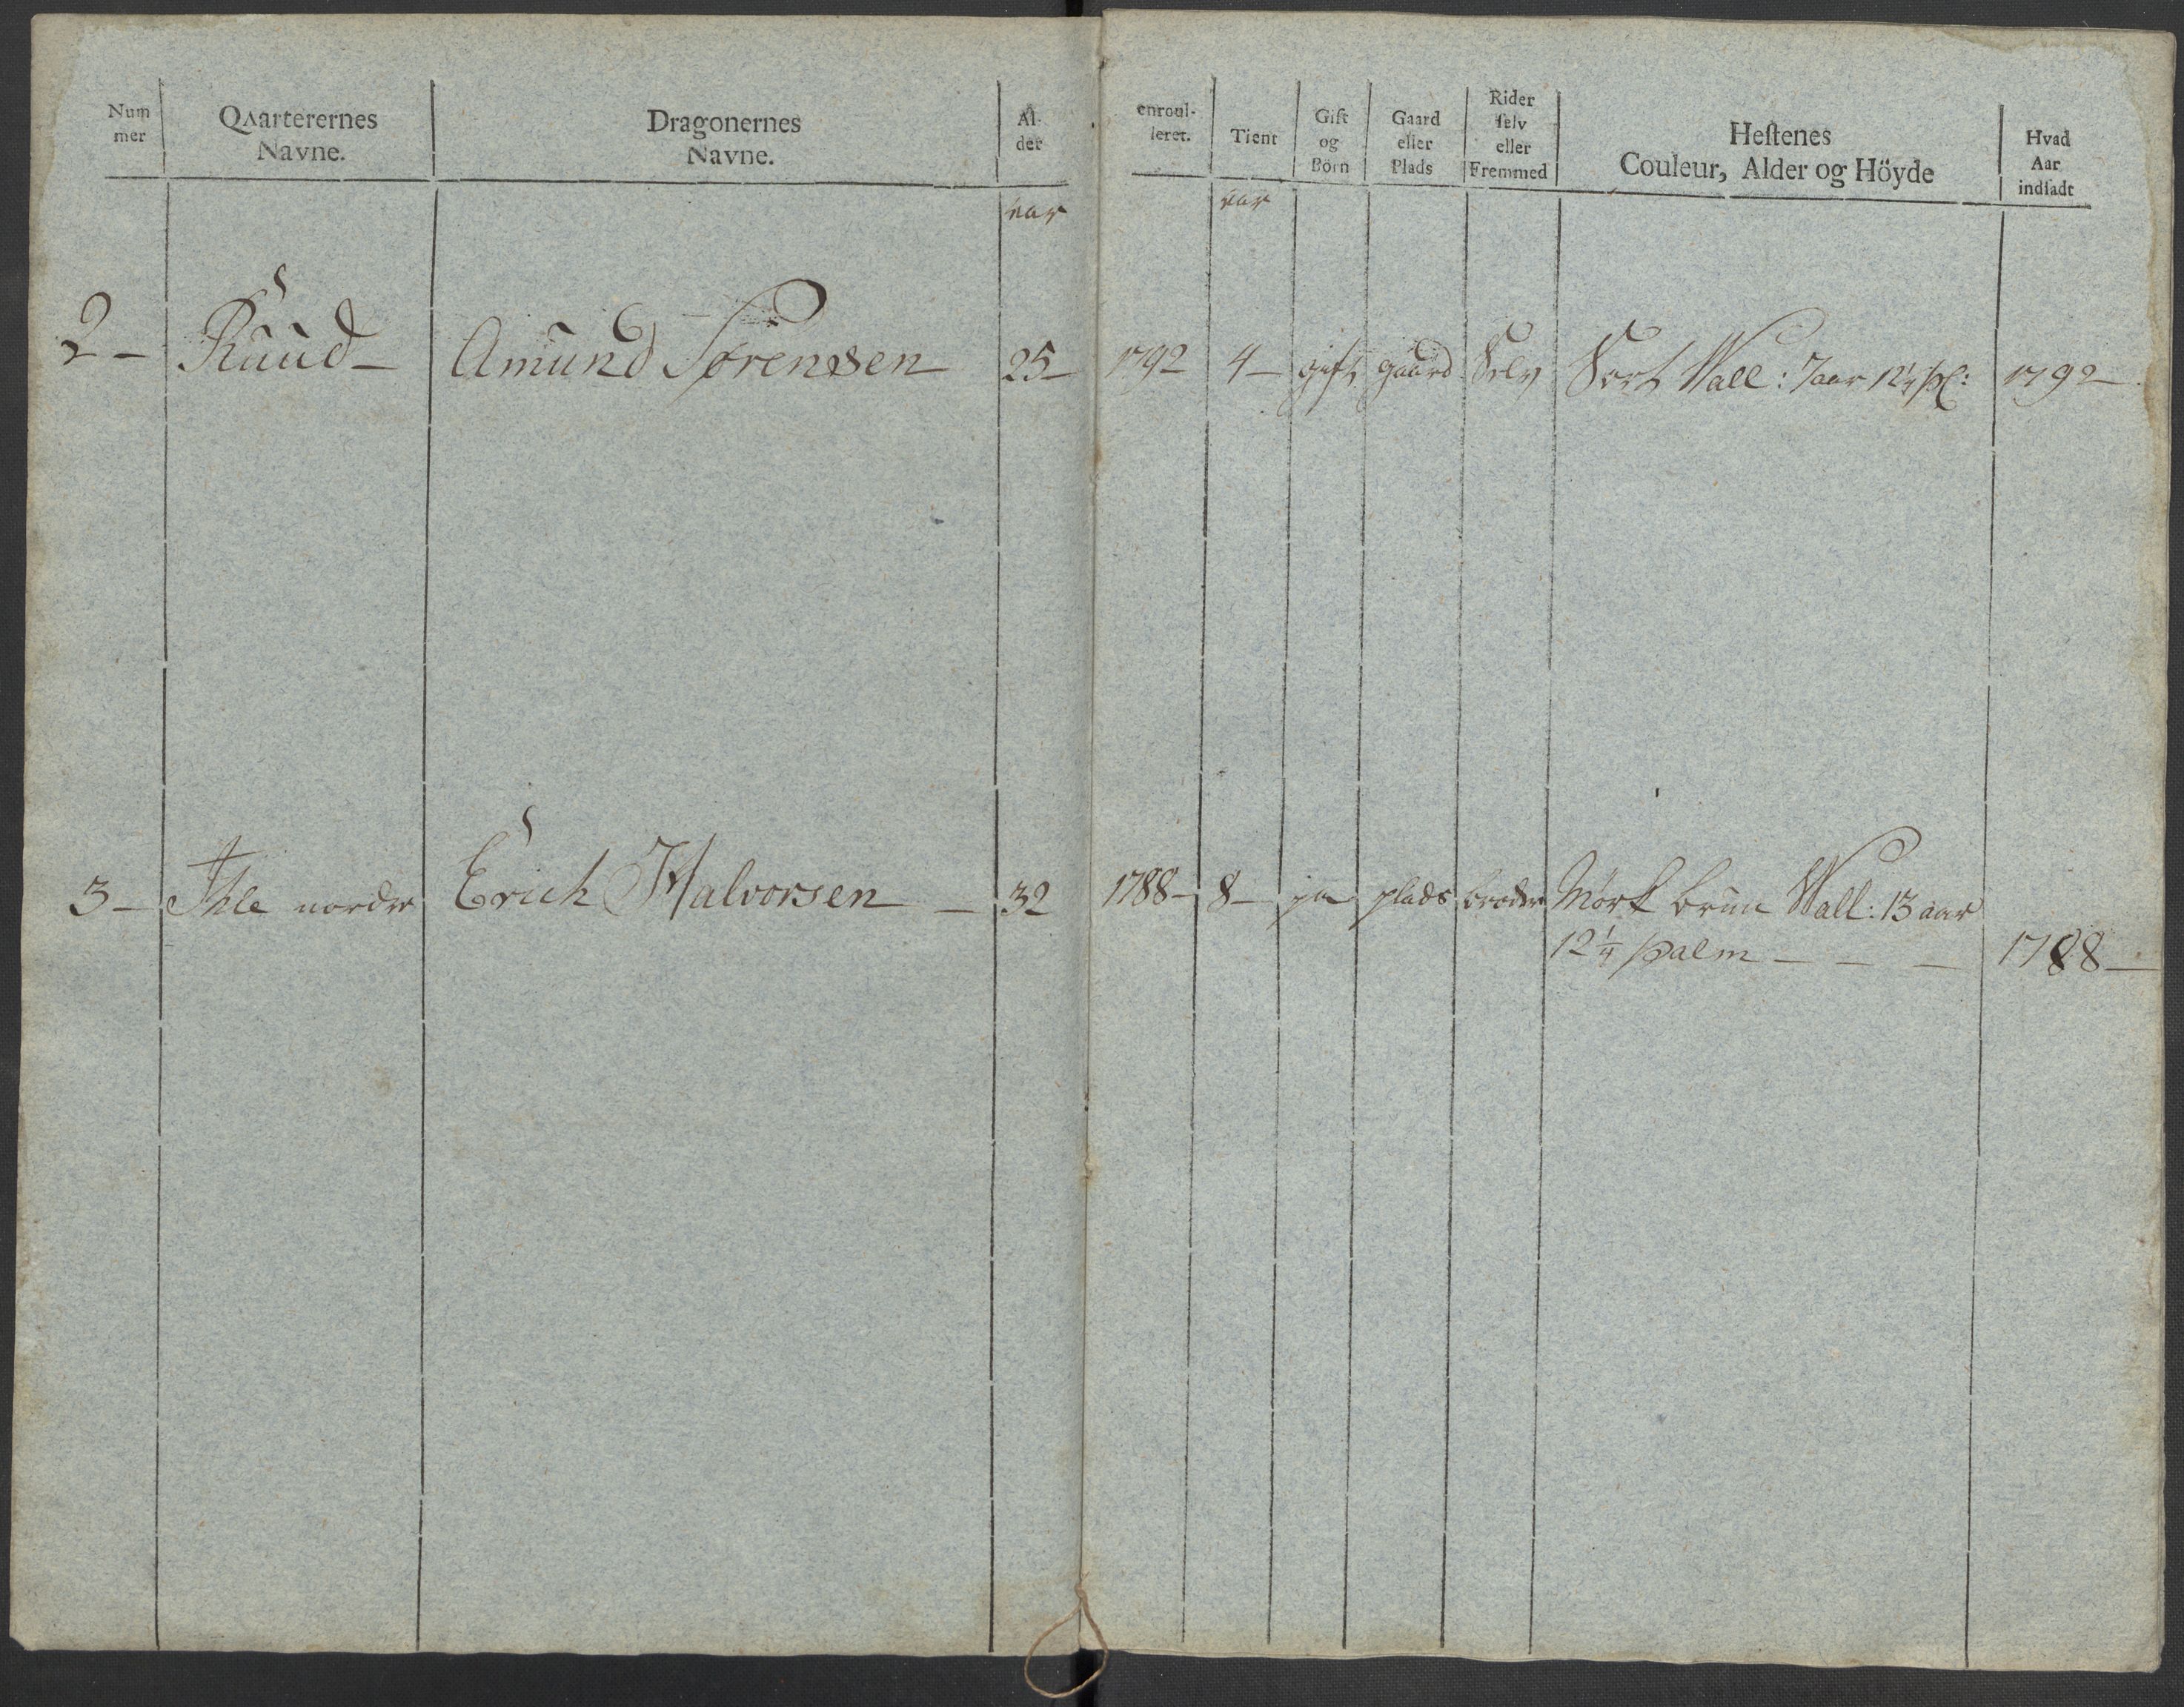 Num
mer
Qvarterernes
Navne.
Dragonernes
Navne.
Al-
der
enroul-
leret.
Tient
Gift
og
Börn
Gaard
eller
Plads
Rider
ſelv
eller
Fremmed
Heſtenes
Couleur, Alder og Höyde
Hvad
Aar
indſadt
aar
aar
2 - Ruud - Amund Sørensen 25 - 1792 4 - gift gaard Selv Sort Wall: 7 aar 12¼ pl: 1792 -
3 - Ihle nordre Erich Halvorsen - 32 1788 - 8 - ja plads broder Mørk brun Wall: 13 aar
12¼ palm - - - 1788 -